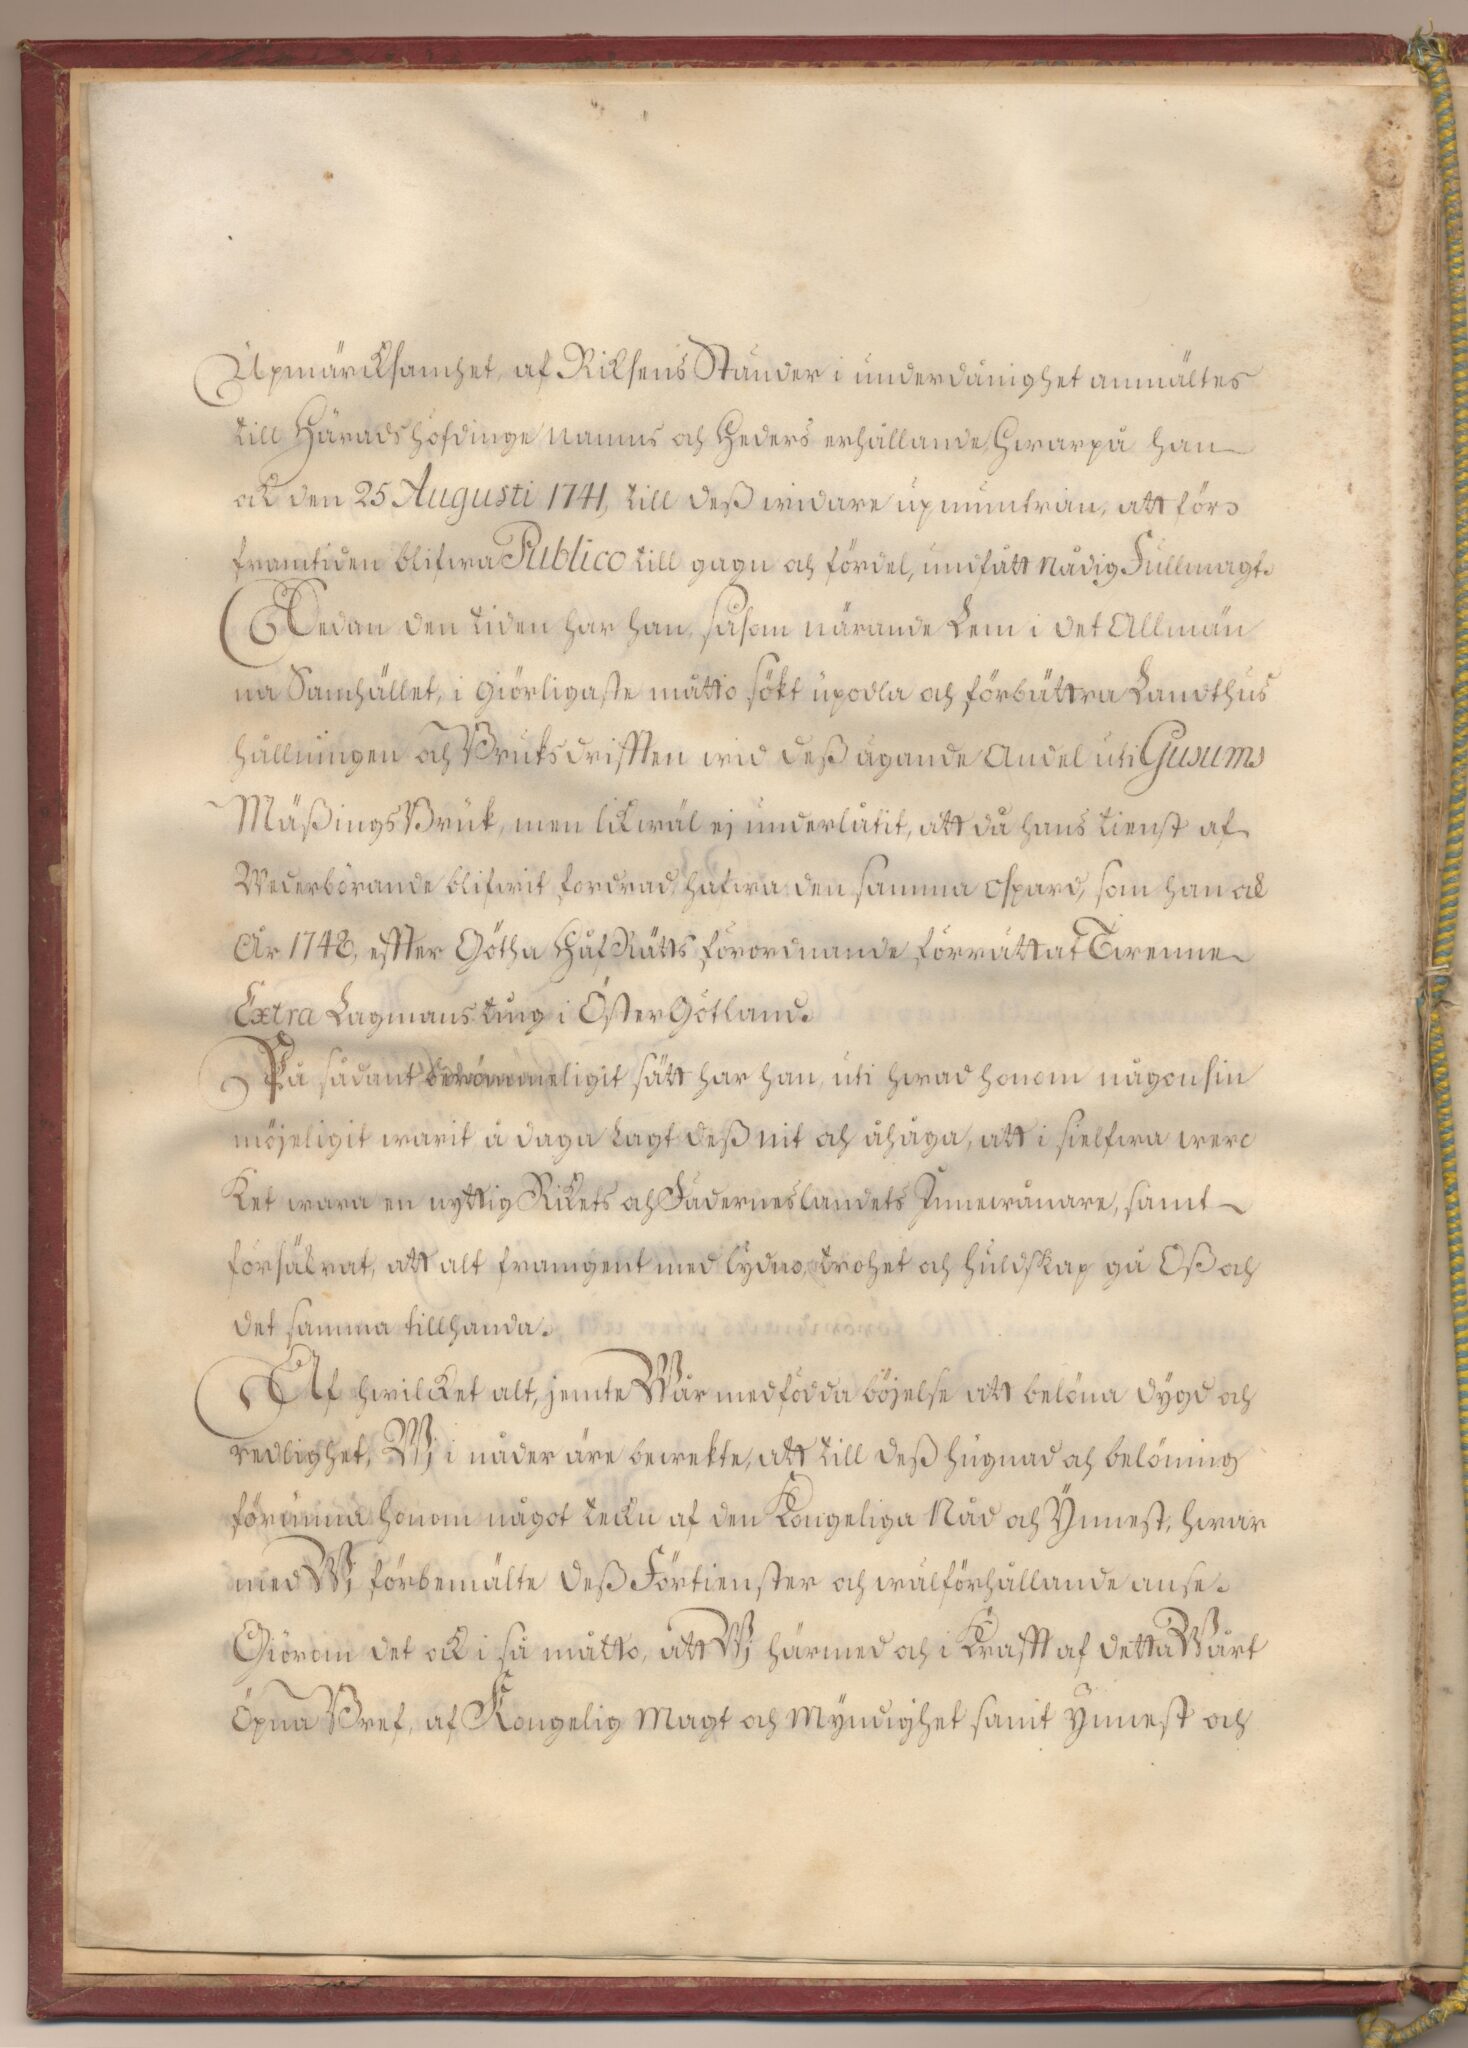 Upmärcksamhet, af Riksens Ständer i underdånighet anmältes
till Häradshöfdinge namns och Heders erhållande, Hwarpå han
ock den 25 Augusti 1741, till deß widare upmuntran, att för
framtiden blifwa Publico till gagn och fördel, undfått Nådig Fullmagt.
Sedan den tiden har han, såsom närande Lem i det Allmän
na Samhället, i giörligaste måtto sökt upodla och förbättra Landthus
hållningen och Bruksdrifften wid deß ägande Andel uti Gusums
Mäßings Bruk, men likwäl ej underlåtit, att då hans tienst af
Wederbörande blifwit fordrad, hafwa den samma ospard, som han ock
År 1748, effter Götha HåfRätts förordnande förrättat Twenne
Extra Lagmans ting i ÖsterGötland.
På sådant berömmeligit sätt har han, uti hwad honom någonsin
möjeligit warit å daga lagt deß nit och åhåga, att i sielfwa wer
ket wara en nyttig Rikets och Fäderneslandets Innewånare, samt
försäkrat, att alt framgent med lydno, trohet och huldskap gå Oß och
det samma tillhanda.
Af hwilcket alt, jemte Wår medfödda böjelse att belöna dygd och
redlighet, Wj i nåder äre bewekte, att till deß hugnad och belöning
förunna honom något teckn af den Kongeliga Nåd och Ynnest, hwar
med Wj förbemälte deß Förtienster och wälförhållande anse.
Giörom det ock i så måtto, att Wj härmed och i Krafft af detta Wårt
öpna Bref, af Kongelig Magt och Myndighet samt ynnest och